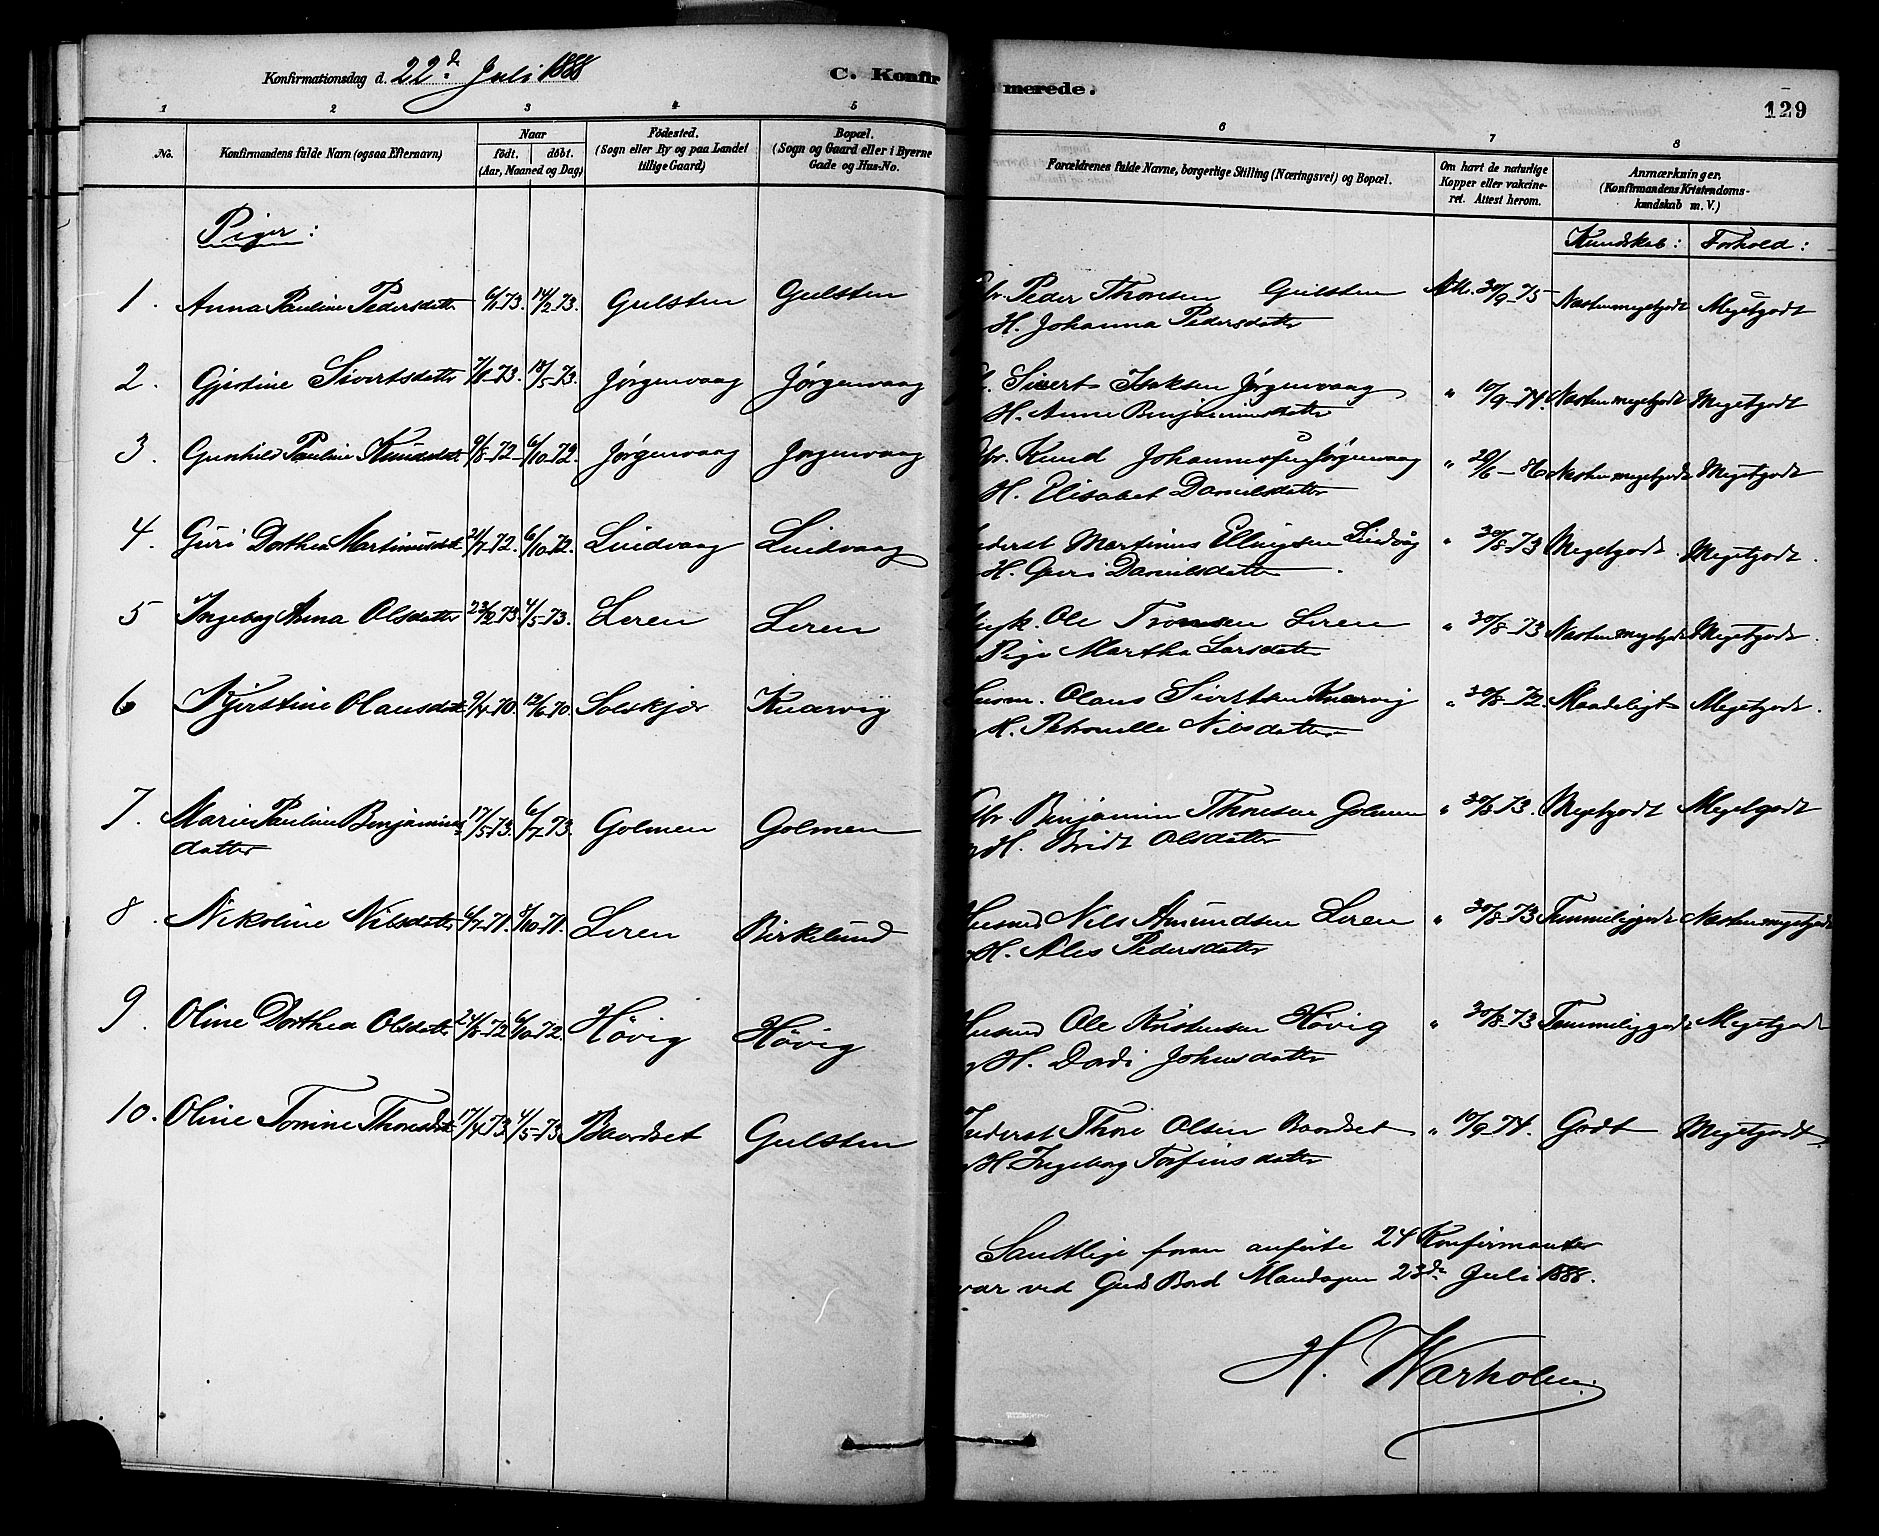 Konfirmationsdag d. 22d Juli 1888 C. Konfirmerede. 129
1 2 3 4 5 6 7 8
No. Konfirmandens fulde Navn (ogsaa Efternavn) Naar født. døbt. (Aar, Maaned og Dag) Fødested. (Sogn eller By og paa Landet tillige Gaard) Bopæl. (Sogn og Gaard eller i Byerne Gade og Hus-No. Forældrenes fulde Navne, borgerlige Stilling (Næringsvei) og Bopæl. Om havt de naturlige Kopper eller vakcineret. Attest herom. Anmærkninger. (Konfirmandens Kristendomskundskab m. V.)
Piger: Kundskab: Forhold:
1. Anna Pauline Pedersdatt 6/1 73. 14/2 73. Gulsten Gulsten Gbr. Peder Thoresen Gulsten Att. 30/9-75 Næsten megetgodt Megetgodt
H. Johanna Pedersdatter
2. Gjertine Sivertsdatter 18/5-73. Jørgenvaag Jørgenvaag Sivert Isaksen Jørgenvaag " 10/9-74. Næsten megetgodt Megetgodt
H. Anne Benjaminsdatter
3. Gunhild Pauline Knudsdt. 9/8-72 6/10-72. Jørgenvaag Jørgenvaag Gbr. Knud Johannessen Jørgenvaag " 20/6-86 Næsten megetgodt Megetgodt
H. Elisabet Danielsdatter
4. Guri Dorthea Martinusdt 21/7-72. 6/10 72. Lindvaag Lindvaag Inderst Martinus Ellingsen Lindvåg " 30/8-73 Megetgodt. Megetgodt.
H. Guri Danielsdatter.
5 Ingebog Anna Olsdatter 23/2 73. 4/5-73. Leren Leren Ungk. Ole Tronsen Leren " 30/8-73 Næsten megetgodt Megetgodt.
Pige Martha Larsdatter
6 Kjerstine Olausdat 9/4-70. 12/6 70. Solskjær Knarvig Husm. Olaus Sivertsen Knarvig " 30/8-72. Maadeligt Megetgodt.
H. Petronelle Nilsdatter
7. Marie Pauline Benjamins 17/5-73. 6/7 73. Golmen Golmen Gbr. Benjamin Thoresen Golmen " 30/8 73. Megetgodt Megetgodt
datter H. Bridt Olsdatter
8. Nikoline Nilsdatter Leren Birkelund Husmd Nils Amundsen Leren " 30/8-73 Temmeliggodt Næsten megetgodt
H. Ales Pedersdatter
9. Oline Dorthea Olsdatt. 24/8-72 6/10-72. Høvig Høvig Husmd Ole Kristensen Høvig " 30/8-73 Temmeliggodt Megetgodt
H. Dordi Johnsdatter
10. Oline Tomine Thoresdat 17/4 73. 4/5-73 Baardset Gulsten Inderst Thore Olsen Baardset " 10/9 74. Godt Megetgodt.
H. Ingeborg Torfinsdatter
Samtlige foran anførte 24 Konfirmanter
var ved Guds Bord Mandagen 23de Juli 1888.
H. Wærholm.